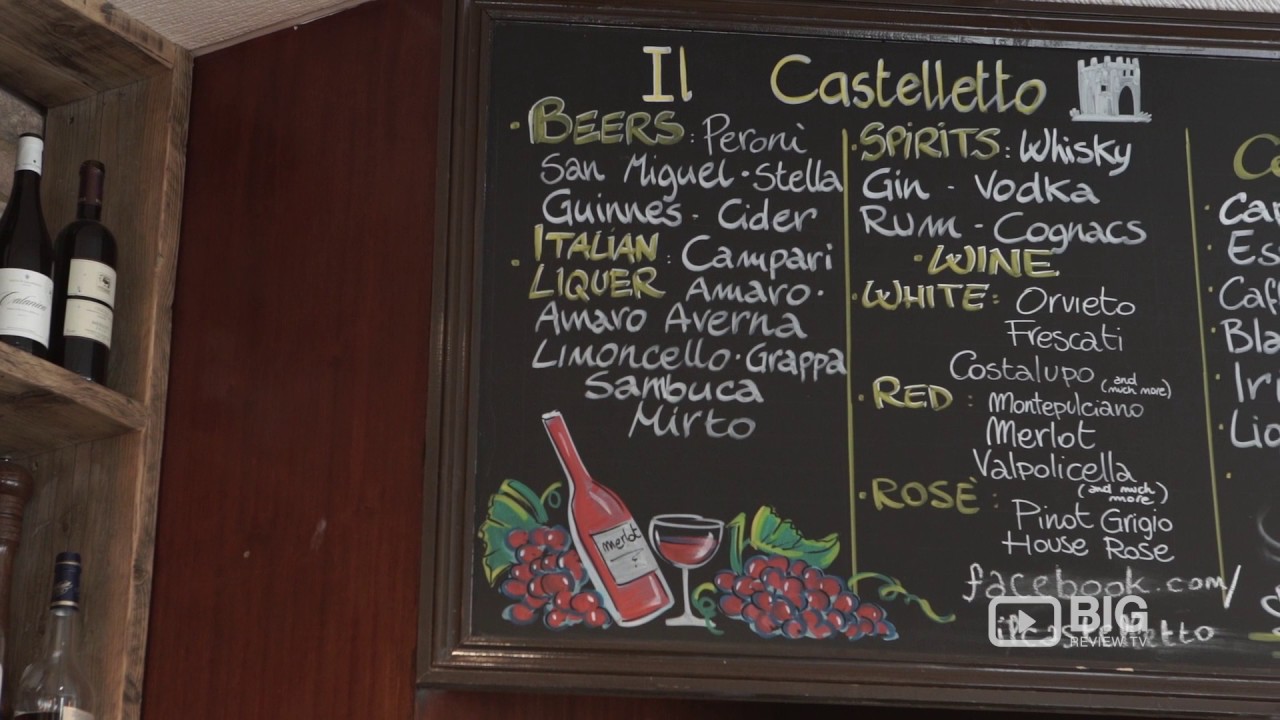 Il Castelletto
· BEERS: Peroni
San Miguel · Stella
Guinnes · Cider
· ITALIAN LIQUER: Campari
Amaro ·
Amaro Averna
Limoncello · Grappa
Sambuca
Mirto
merlot
· SPIRITS: Whisky
Gin - Vodka
Rum - Cognacs
· WINE
· WHITE: Orvieto
Frescati
Costalupo (and much more)
· RED: Montepulciano
Merlot
Valpolicella
(and much more)
· ROSÈ: Pinot Grigio
House Rose
facebook.com/
ilcastelletto
BIG
REVIEW TV